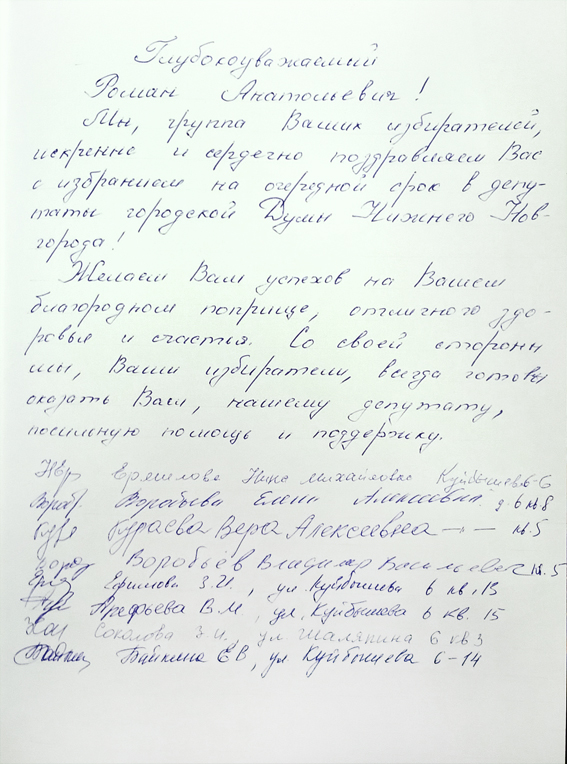 Глубокоуважаемый
Роман Анатольевич!
Мы, группа Ваших избирателей,
искренне и сердечно поздравляем Вас
с избранием на очередной срок в депу-
таты городской Думы Нижнего Нов-
города!
Желаем Вам успехов на Вашем
благородном поприще, отличного здо-
ровья и счастья. Со своей стороны
мы, Ваши избиратели, всегда готовы
оказать Вам, нашему депутату,
посильную помощь и поддержку.
Нина Михайловна Куйбышева 6-6
Воробьева Елена Алексеевна д. 6 кв. 8
Кураева Вера Алексеевна —〃— кв. 5
Воробьёв Владимир Васильевич кв. 5
Ефимова З.И., ул. Куйбышева 6 кв. 13
Арефьева В.М, ул. Куйбышева 6 кв. 15
Соколова З.И., ул Шаляпина 6 кв 3
Байкина ЕВ, ул Куйбышева 6-14